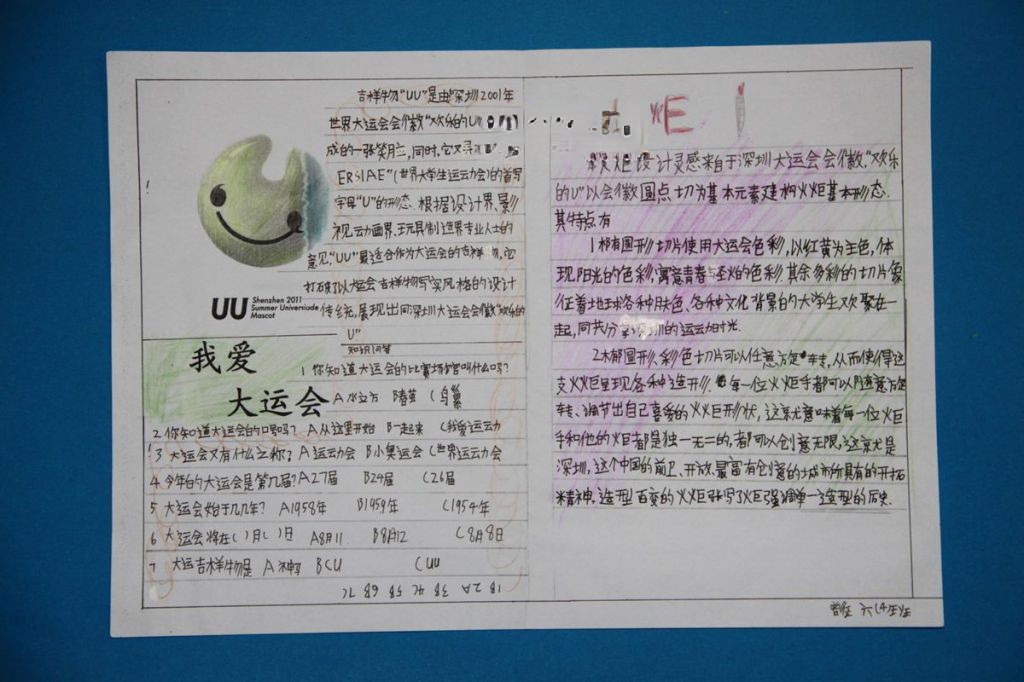 吉祥物“UU”是由“深圳2001年
世界大运会会徽“欢乐的U
成的一张笑脸,同时,它又
ERSIAE”(世界大学生运动会)的首写
字母“U”的形态.根据设计界、影
视云力画界、玩具制造界专业人士的
意见,“UU”最适合作为大运会的吉祥物,它
打破了以大运会吉祥物写实风格的设计
传统,展现出同深圳大运会会徽“欢乐的
U”
UU Shenzhen 2011
Summer Universiade
Mascot
我爱
大运会
知识问答
1 你知道大运会的比赛场馆叫什么吗?
A水立方 B春茧 C鸟巢
2 你知道大运会的口号吗? A从这里开始 B一起来 C我爱运动
3 大运会又有什么之称? A运动会 B小奥运会 C世界运动会
4 今年的大运会是第几届? A27届 B24届 C26届
5 大运会始于几几年? A1958年 B1959年 C1954年
6 大运会将在( )月( )日 A8月11 B8月12 C8月8日
7 大运吉祥物是 A B CU C UU
1B 2A 3B 4C 5B 6B 7C
炬
火炬设计灵感来自于深圳大运会会徽“欢乐
的U”以会徽圆点切为基本元素建构火炬基本形态.
其特点有
1椭圆形切片使用大运会色彩,以红黄为主色,体
现阳光的色彩,寓意青春与圣火的色彩.其余多彩的切片象
征着地球各种肤色、各种文化背景的大学生欢聚在一
起,同共分享深圳的运动时光.
2椭圆形、彩色切片可以任意方定 转,从而使得这
支火炬呈现各种造形.每一位火炬手都可以随意方定
转、调节出自己喜爱的火炬形状,这就意味着每一位火炬
手和他的火炬都是独一无二的,都可以创意无限,这就是
深圳,这个中国的前卫、开放、最富有创意的城市所具有的开拓
精神.造型百变的火炬改写了火炬强调单一造型的历史.
六(4)